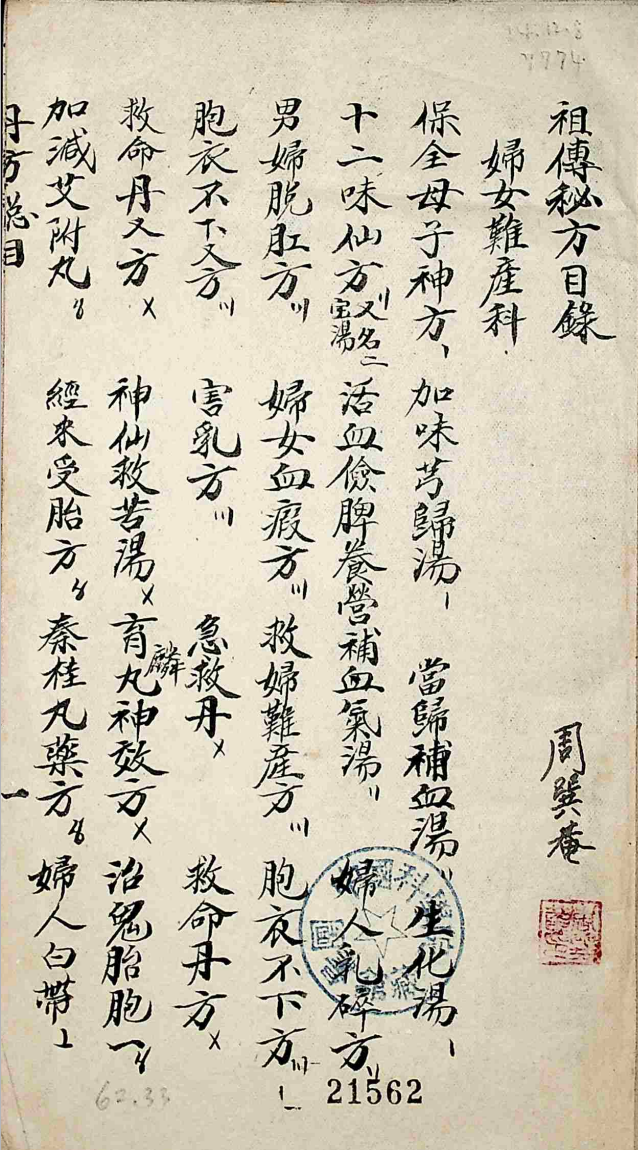 祖傳秘方目錄
周巽菴
婦女難產科
保全母子神方〡 加味芎歸湯〡 當歸補血湯〢 生化湯〡
十二味仙方〢又名二宝湯 活血儉脾養營補血氣湯〢 婦人乳碎方〢
男婦脫肛方〣 婦女血瘕方〣 救婦難産方〣 胞衣不下方〣
胞衣不下又方〣 害乳方〣 急救丹〤 救命丹方〤
救命丹又方〤 神仙救苦湯〤 育麟丸神效方〤 治鬼胎胞一〥
加減艾附丸〥 經來受胎方〥 秦桂丸藥方〥 婦人白帶〦
丹方總目
一
21562
62.33
7774